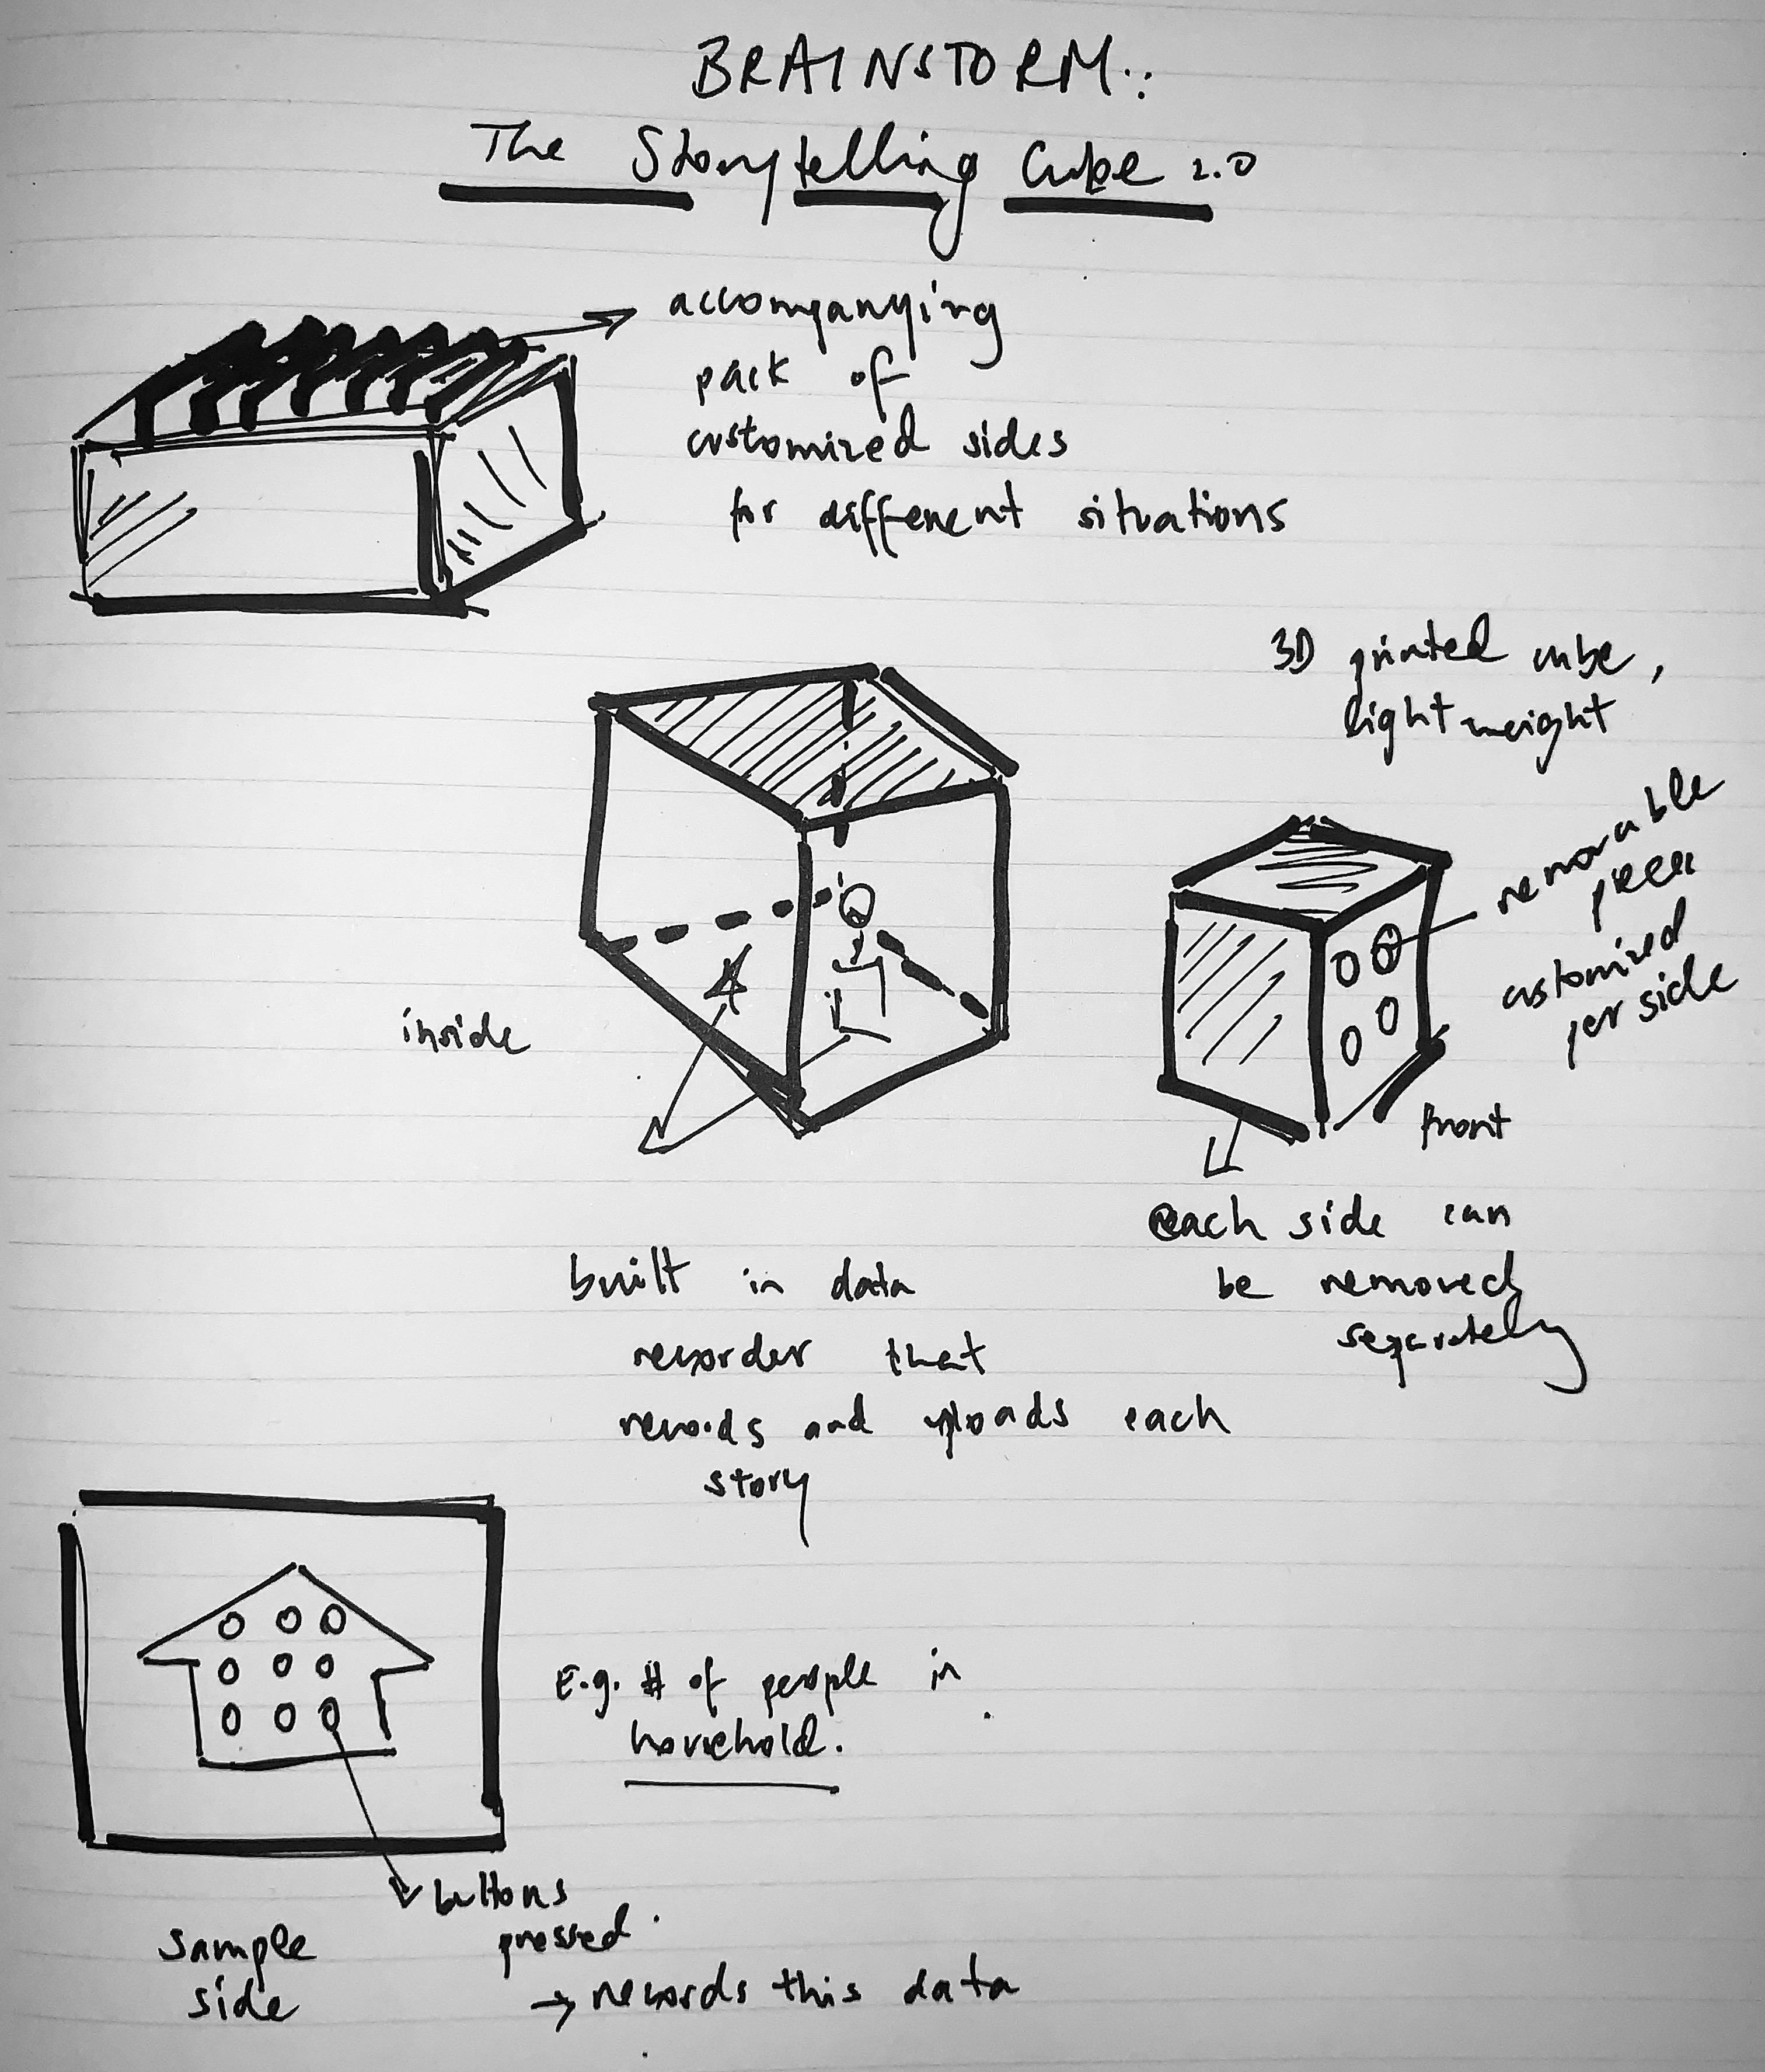 BRAINSTORM:
The Storytelling Cube 2.0
accompanying
pack of
customized sides
for different situations
3D printed cube,
light weight
removable
pieces
customized
per side
inside
front
each side can
be removed
separately
built in data
recorder that
records and uploads each
story
E.g. # of people in
household.
buttons
pressed.
→ records this data
sample
side